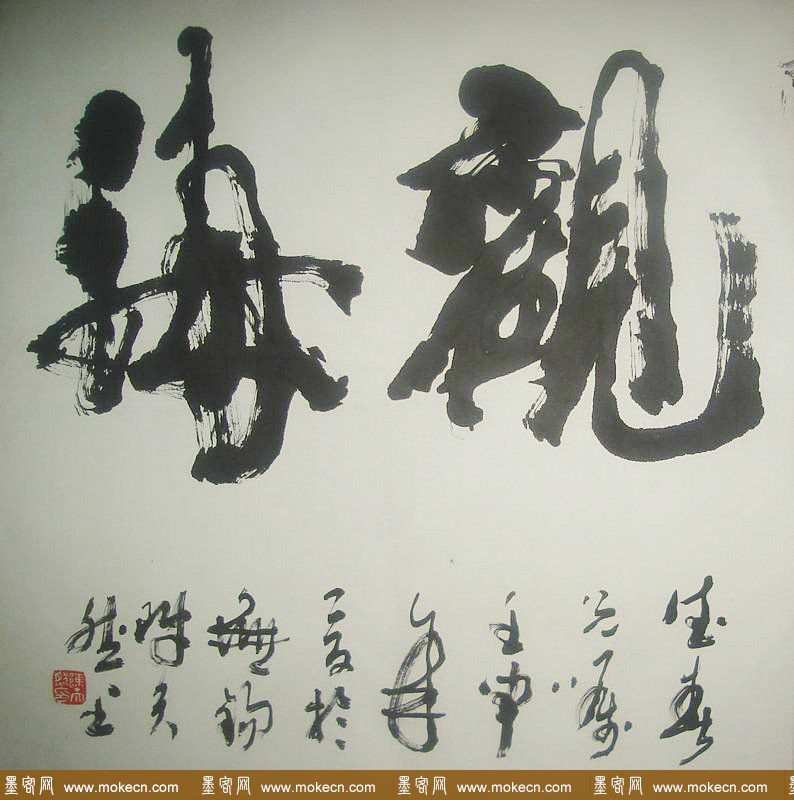 觀海
春
属
壬申
年
夏於
無錫
陳天
然书
墨客网 www.mokecn.com 墨客网 www.mokecn.com 墨客网 www.mokecn.com 墨客网 www.mokecn.com